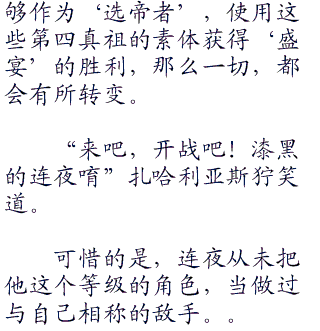 够作为‘选帝者’，使用这
些第四真祖的素体获得‘盛
宴’的胜利，那么一切，都
会有所转变。
“来吧，开战吧！漆黑
的连夜唷”扎哈利亚斯狞笑
道。
可惜的是，连夜从未把
他这个等级的角色，当做过
与自己相称的敌手。。